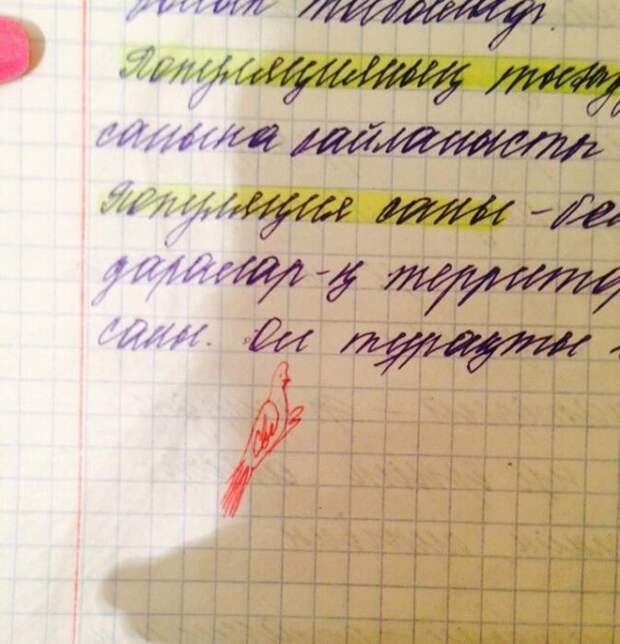 болып табылады.
Популяцияның тығыз
санына байланысты
Популяция саны - бел
даралар-ң территор
саны. Ол тұрақты -